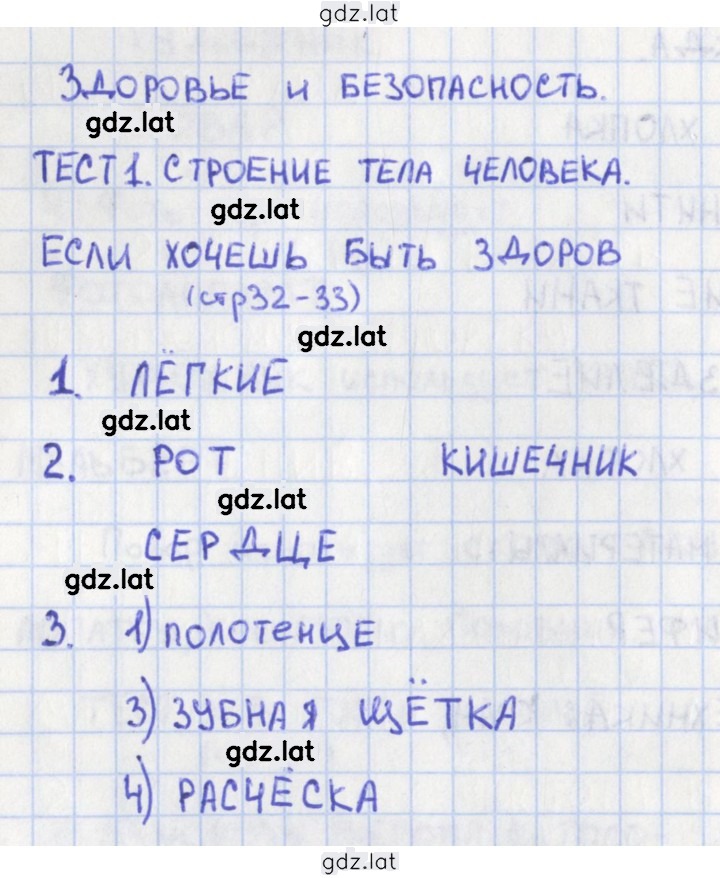 gdz.lat
ЗДОРОВЬЕ И БЕЗОПАСНОСТЬ.
gdz.lat
ТЕСТ 1. СТРОЕНИЕ ТЕЛА ЧЕЛОВЕКА.
gdz.lat
ЕСЛИ ХОЧЕШЬ БЫТЬ ЗДОРОВ
(стр32-33)
gdz.lat
1. ЛЁГКИЕ
gdz.lat
2. РОТ КИШЕЧНИК
gdz.lat
СЕРДЦЕ
gdz.lat
3. 1) ПОЛОТЕНЦЕ
3) ЗУБНАЯ ЩЁТКА
gdz.lat
4) РАСЧЁСКА
gdz.lat